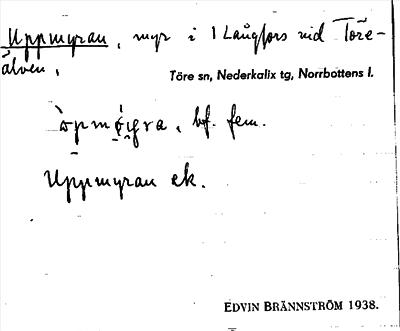 Uppmyran, myr i 1 Långfors vid Töre-
älven,
Töre sn, Nederkalix tg, Norrbottens l.
bf. fem.
Uppmyran ek.
EDVIN BRÄNNSTRÖM 1938.